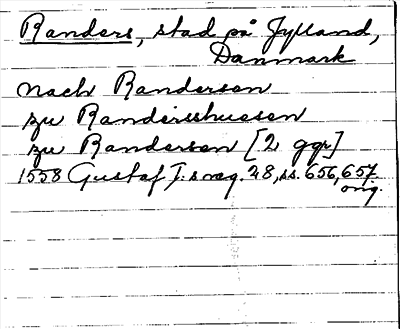 Randers, stad på Jylland,
Danmark
nach Randersen
zu Randershusen
zu Randersen [2 ggr]
1558 Gustaf I:s reg. 28, ss. 656, 657
orig.